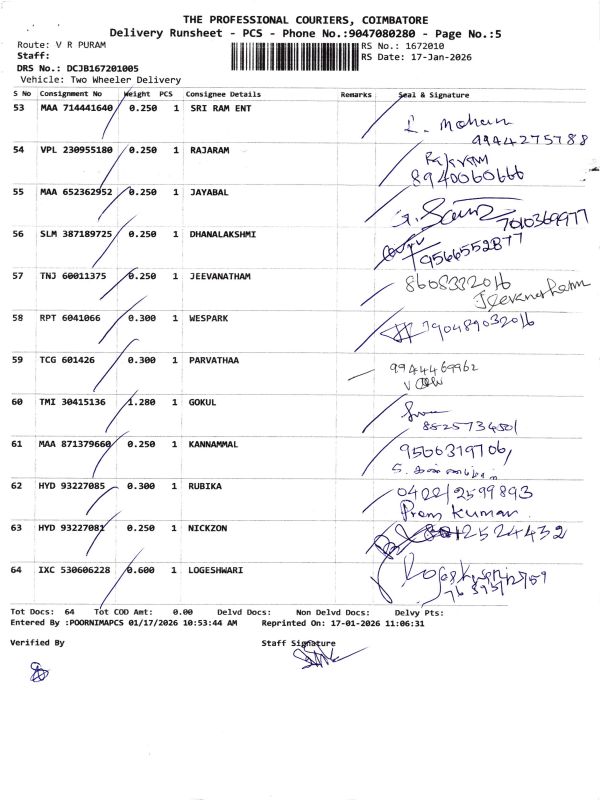 THE PROFESSIONAL COURIERS, COIMBATORE
Delivery Runsheet - PCS - Phone No.:9047080280 - Page No.:5
Route: V R PURAM RS No.: 1672010
Staff: RS Date: 17-Jan-2026
DRS No.: DCJB167201005
Vehicle: Two Wheeler Delivery
S No Consignment No Weight PCS Consignee Details Remarks Seal & Signature
53 MAA 714441640 0.250 1 SRI RAM ENT
L. Mohan
9944275788
54 VPL 230955180 0.250 1 RAJARAM
Rajaram
8940060666
55 MAA 652362952 0.250 1 JAYABAL
7010369977
56 SLM 387189725 0.250 1 DHANALAKSHMI
9566552877
57 TNJ 60011375 0.250 1 JEEVANATHAM 8608332016
Jeevanatham
58 RPT 6041066 0.300 1 WESPARK
790489032016
59 TCG 601426 0.300 1 PARVATHAA
9944469962
60 TMI 30415136 1.280 1 GOKUL
8825734501
61 MAA 871379660 0.250 1 KANNAMMAL
9566319706,
62 HYD 93227085 0.300 1 RUBIKA 0422/2599893
Prem Kumar
63 HYD 93227081 0.250 1 NICKZON
2524432
64 IXC 530606228 0.600 1 LOGESHWARI
Tot Docs: 64 Tot COD Amt: 0.00 Delvd Docs: Non Delvd Docs: Delvy Pts:
Entered By :POORNIMAPCS 01/17/2026 10:53:44 AM Reprinted On: 17-01-2026 11:06:31
Verified By Staff Signature